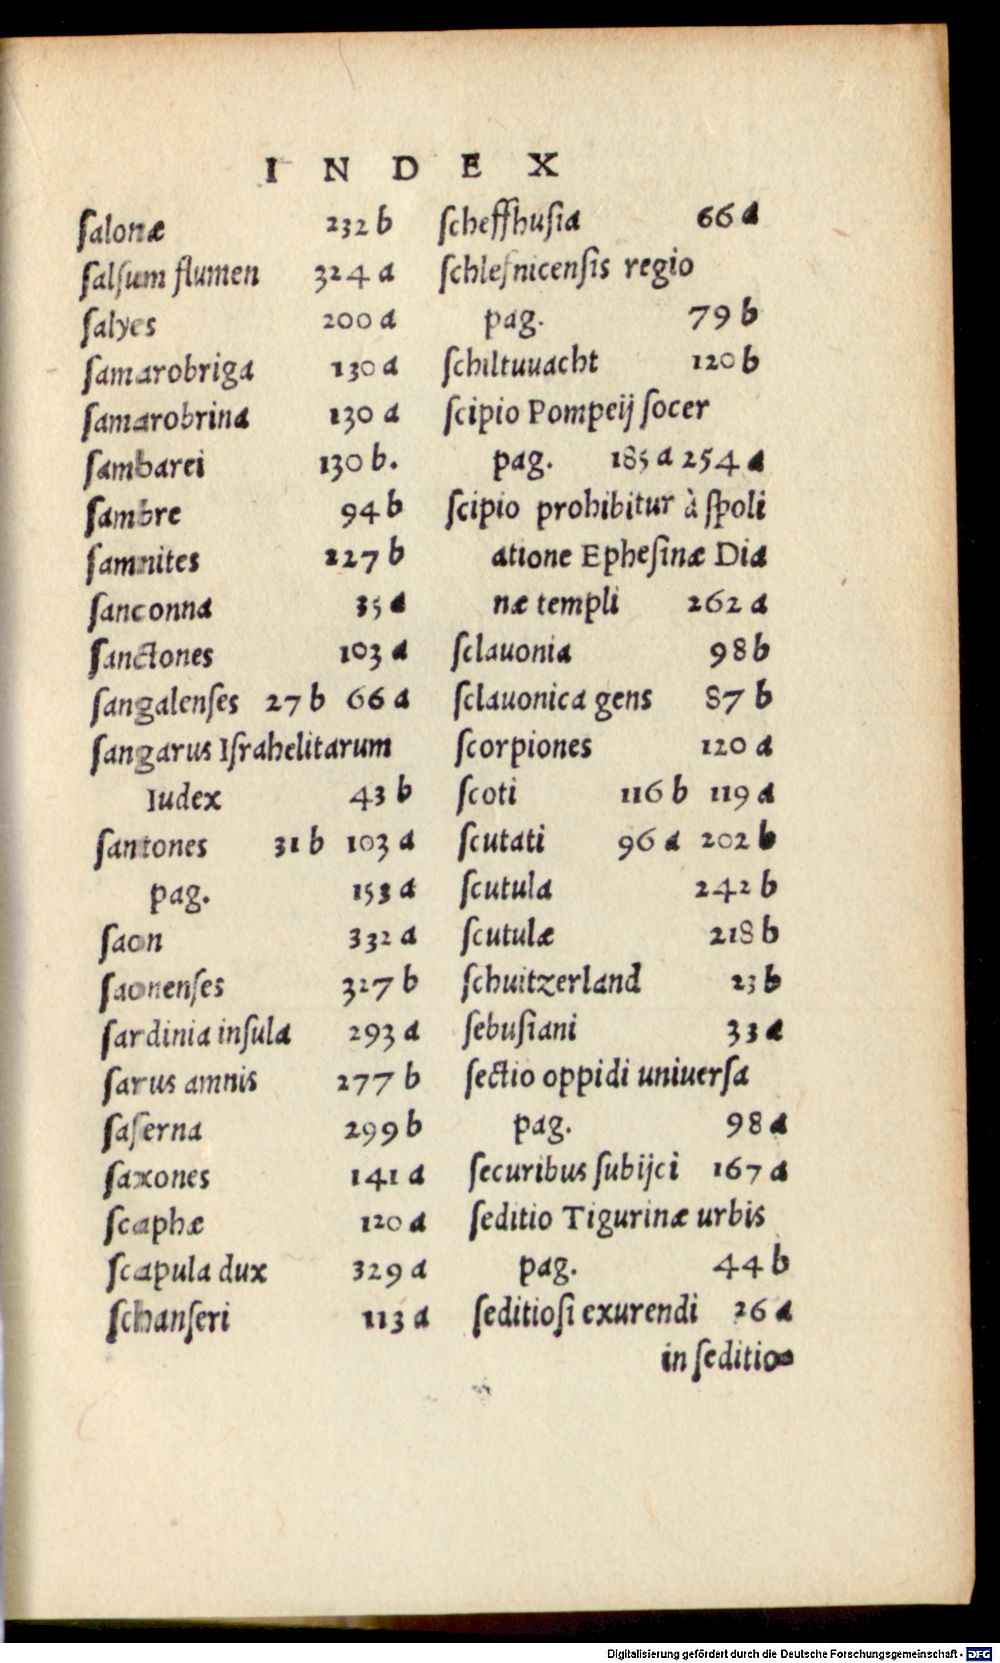 I N D E X
ſalonæ 232 b
ſalſum flumen 324 a
ſalyes 200 a
ſamarobriga 130 a
ſamarobrina 130 a
ſambarei 130 b.
ſambre 94 b
ſamnites 227 b
ſanconna 35 a
ſanctones 103 a
ſangalenſes 27 b 66 a
ſangarus Iſrahelitarum
Iudex 43 b
ſantones 31 b 103 a
pag. 153 a
ſaon 332 a
ſaonenſes 327 b
ſardinia inſula 293 a
ſarus amnis 277 b
ſaſerna 299 b
ſaxones 141 a
ſcaphæ 120 a
ſcapula dux 329 a
ſchanſeri 113 a
ſcheffhuſia 66 a
ſchleſnicenſis regio
pag. 79 b
ſchiltuuacht 120 b
ſcipio Pompeij ſocer
pag. 185 a 254 a
ſcipio prohibitur à ſpoli
atione Epheſinæ Dia
næ templi 262 a
ſclauonia 98 b
ſclauonica gens 87 b
ſcorpiones 120 a
ſcoti 116 b 119 a
ſcutati 96 a 202 b
ſcutula 242 b
ſcutulæ 218 b
ſchuitzerland 23 b
ſebuſiani 33 a
ſectio oppidi uniuerſa
pag. 98 a
ſecuribus ſubijci 167 a
ſeditio Tigurinæ urbis
pag. 44 b
ſeditioſi exurendi 26 a
in ſeditio-
Digitalisierung gefördert durch die Deutsche Forschungsgemeinschaft - DFG